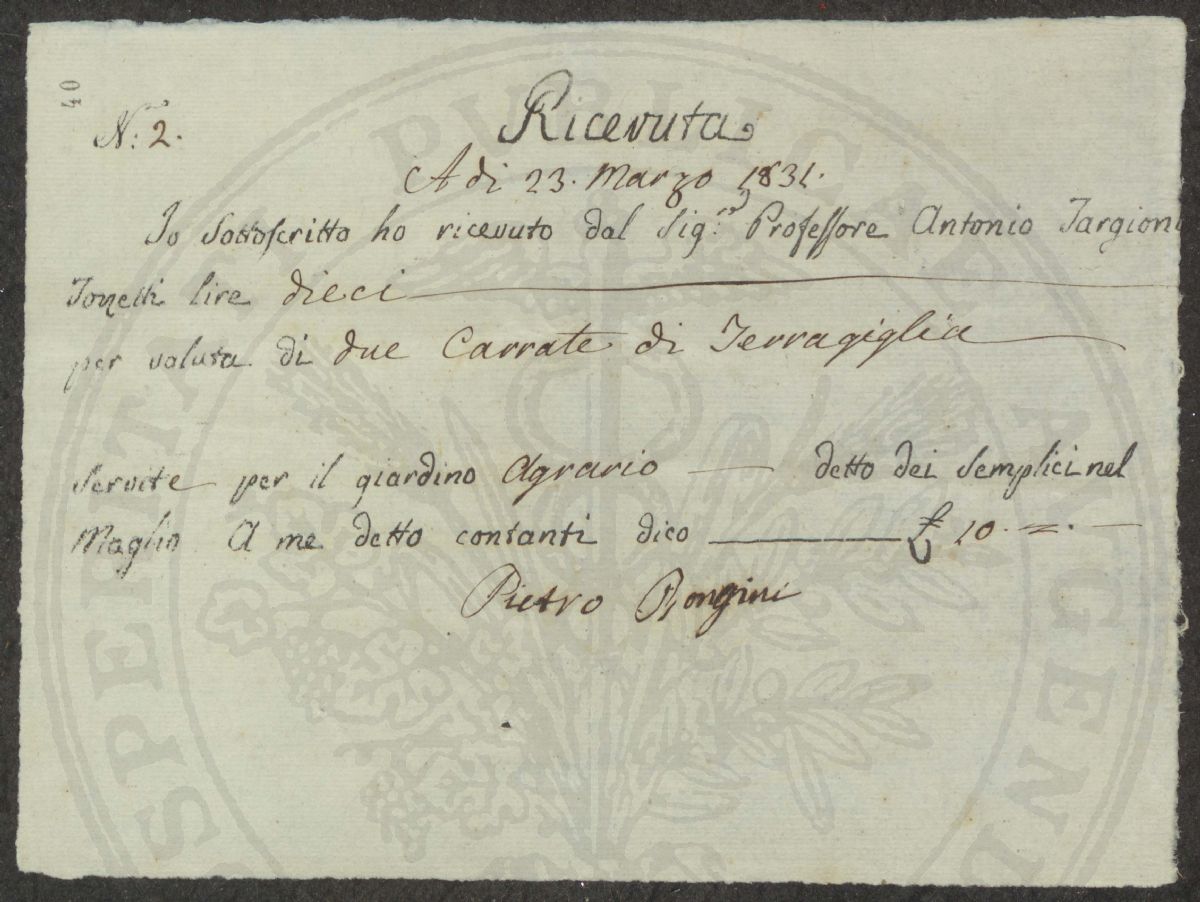 40
N: 2.
Ricevuta
A di 23. Marzo 1831.
Io Sottoscritto ho ricevuto dal Sig.re Professore Antonio Targioni
Tozzetti lire dieci
per valuta di due Carrate di Terragiglia
servite per il giardino Agrario — detto dei Semplici nel
Maglio A me detto contanti dico £ 10. =. —
Pietro Rongini
PROSPERITATI PUBLICAE AUGENDAE